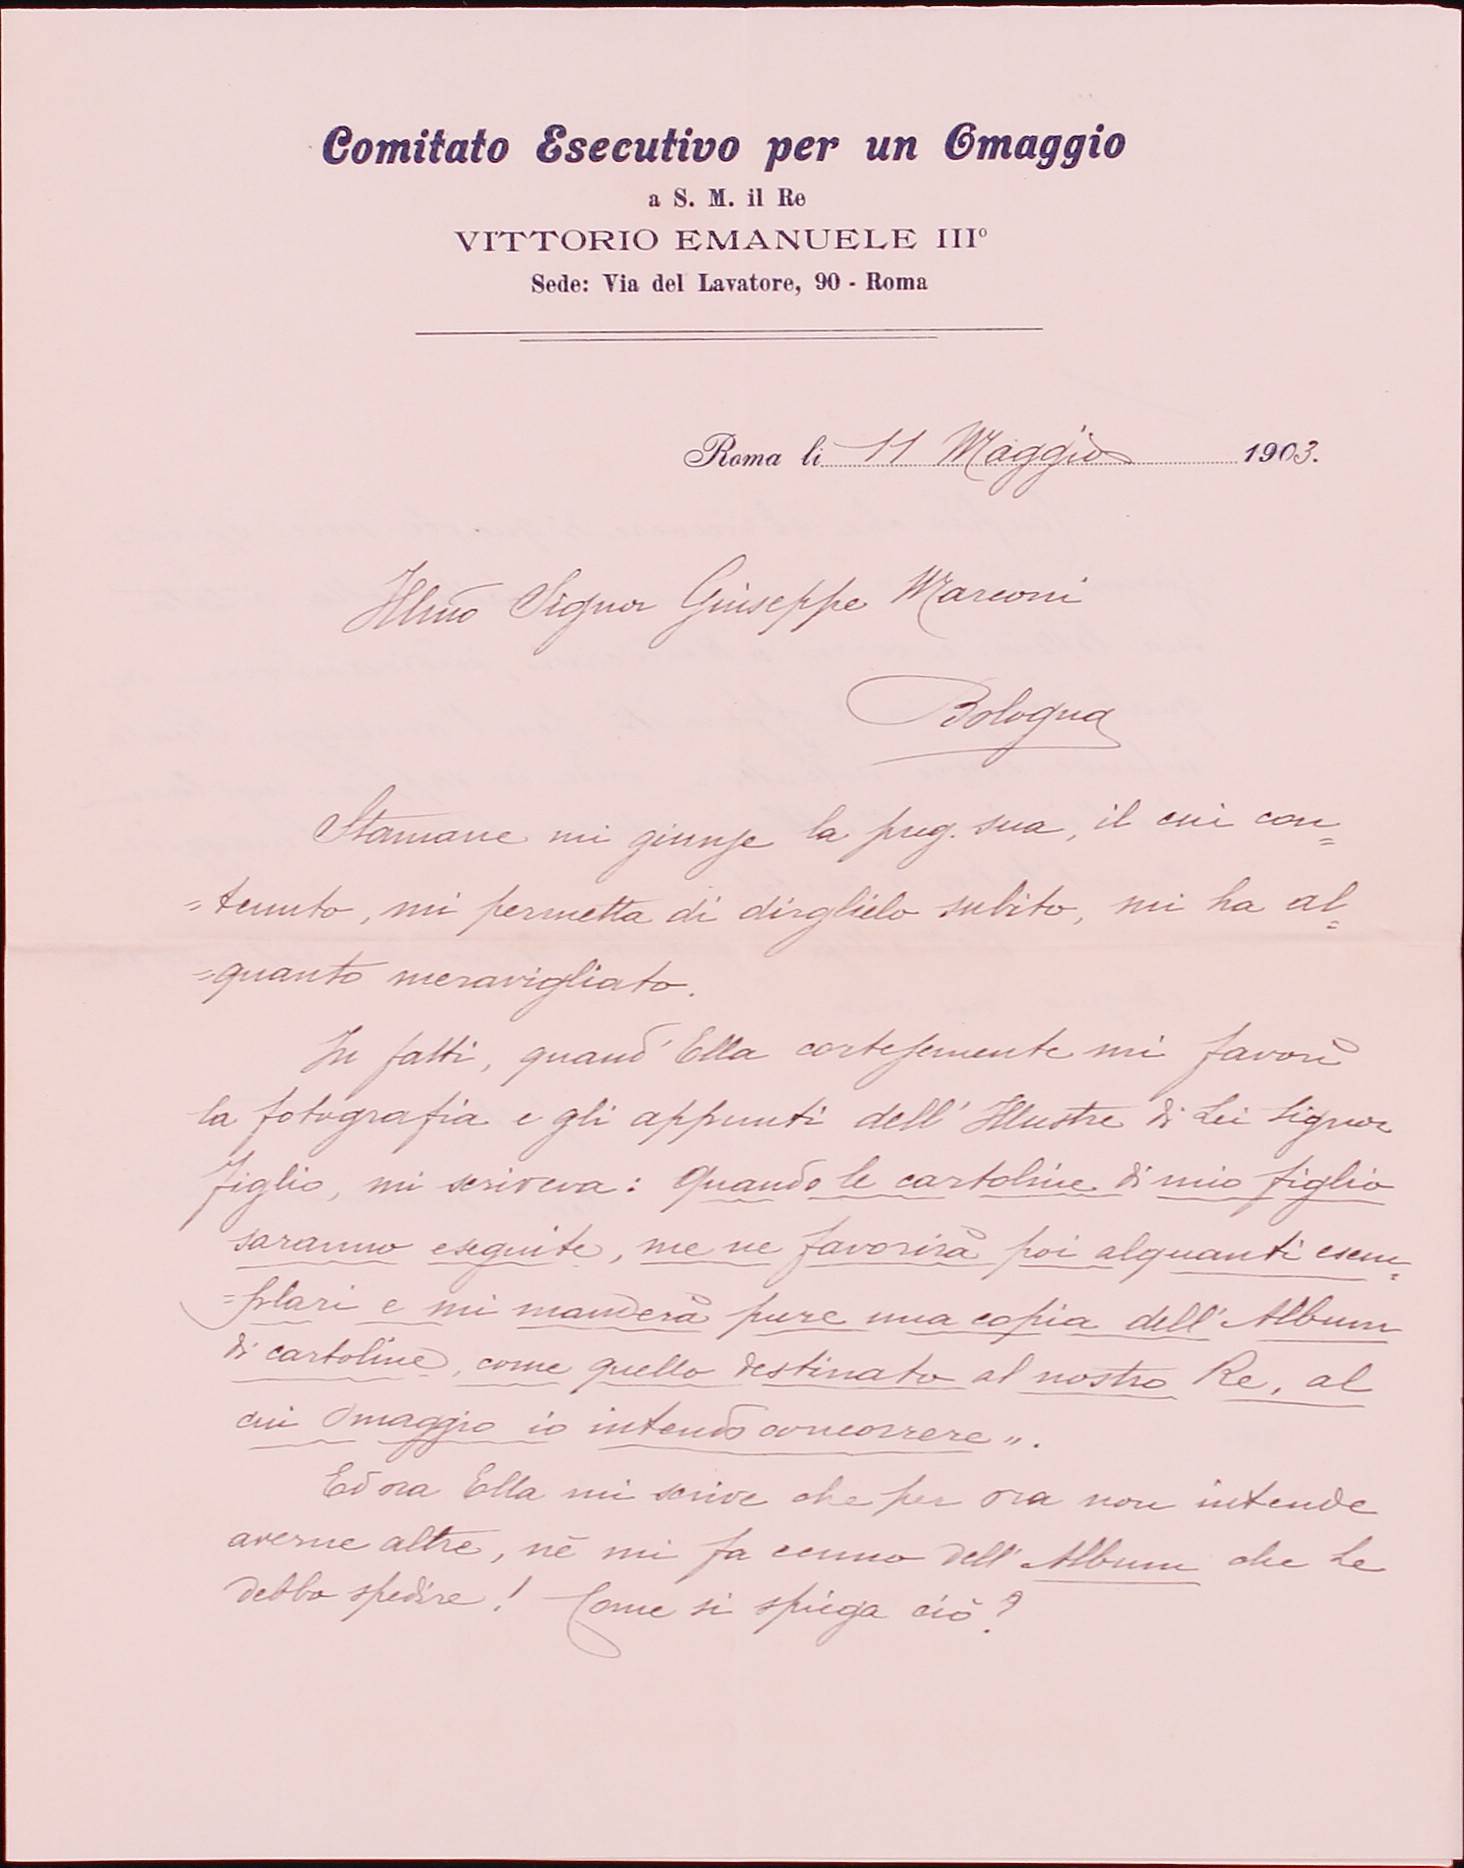 Comitato Esecutivo per un Omaggio
a S. M. il Re
VITTORIO EMANUELE IIIº
Sede: Via del Lavatore, 90 - Roma
Roma li 11 Maggio 1903.
Illmo Signor Giuseppe Marconi
Bologna
Stamane mi giunse la preg. sua, il cui con=
=tenuto, mi permetta di dirglielo subito, mi ha al=
=quanto meravigliato.
In fatti, quand' Ella cortesemente mi favorì
la fotografia e gli appunti dell' Illustre di Lei Signor
figlio, mi scriveva: Quando le cartoline di mio figlio
saranno eseguite, me ne favorirà poi alquanti esem=
=plari e mi manderà pure una copia dell' Album
di cartoline, come quello destinato al nostro Re, al
cui Omaggio io intendo concorrere".
Ed ora Ella mi scrive che per ora non intende
averne altre, nè mi fa cenno dell' Album che Le
debbo spedire! Come si spiega ciò?